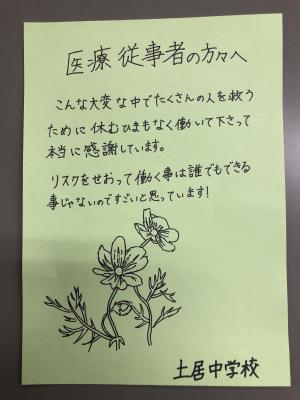 医療従事者の方々へ
こんな大変な中でたくさんの人を救う
ために休むひまもなく働いて下さって
本当に感謝しています。
リスクをせおって働く事は誰でもできる
事じゃないのですごいと思っています!
土居中学校